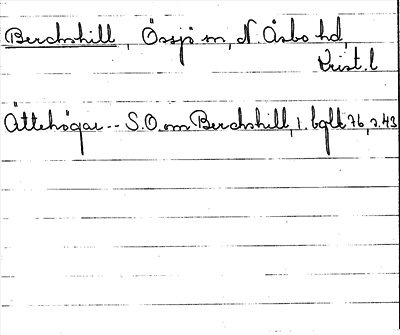 Berchshill, Össjö sn, N. Åsbo hd,
Krist. l
Ättehögar -- S.O. om Berchshill, 1. bglt 76, s. 43